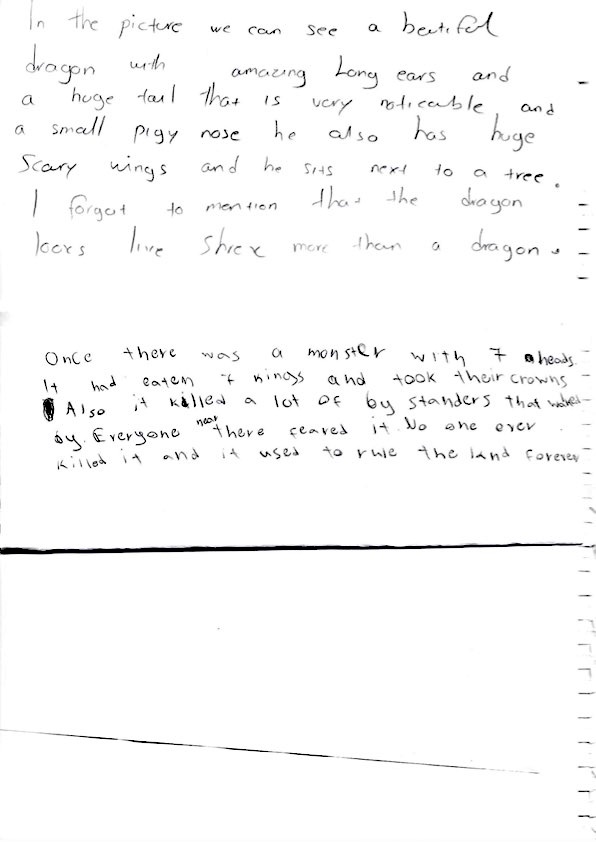 In the picture we can see a beatiful
dragon with amazing Long ears and
a huge tail that is very noticeable and
a small pigy nose he also has huge
Scary wings and he sits next to a tree.
I forgot to mention that the dragon
looks live Shrex more than a dragon.
Once there was a monster with 7 heads.
It had eaten 7 kings and took their crowns
Also it killed a lot of by standers that walked
by. Everyone near there feared it. No one ever
killed it and it used to rule the land forever